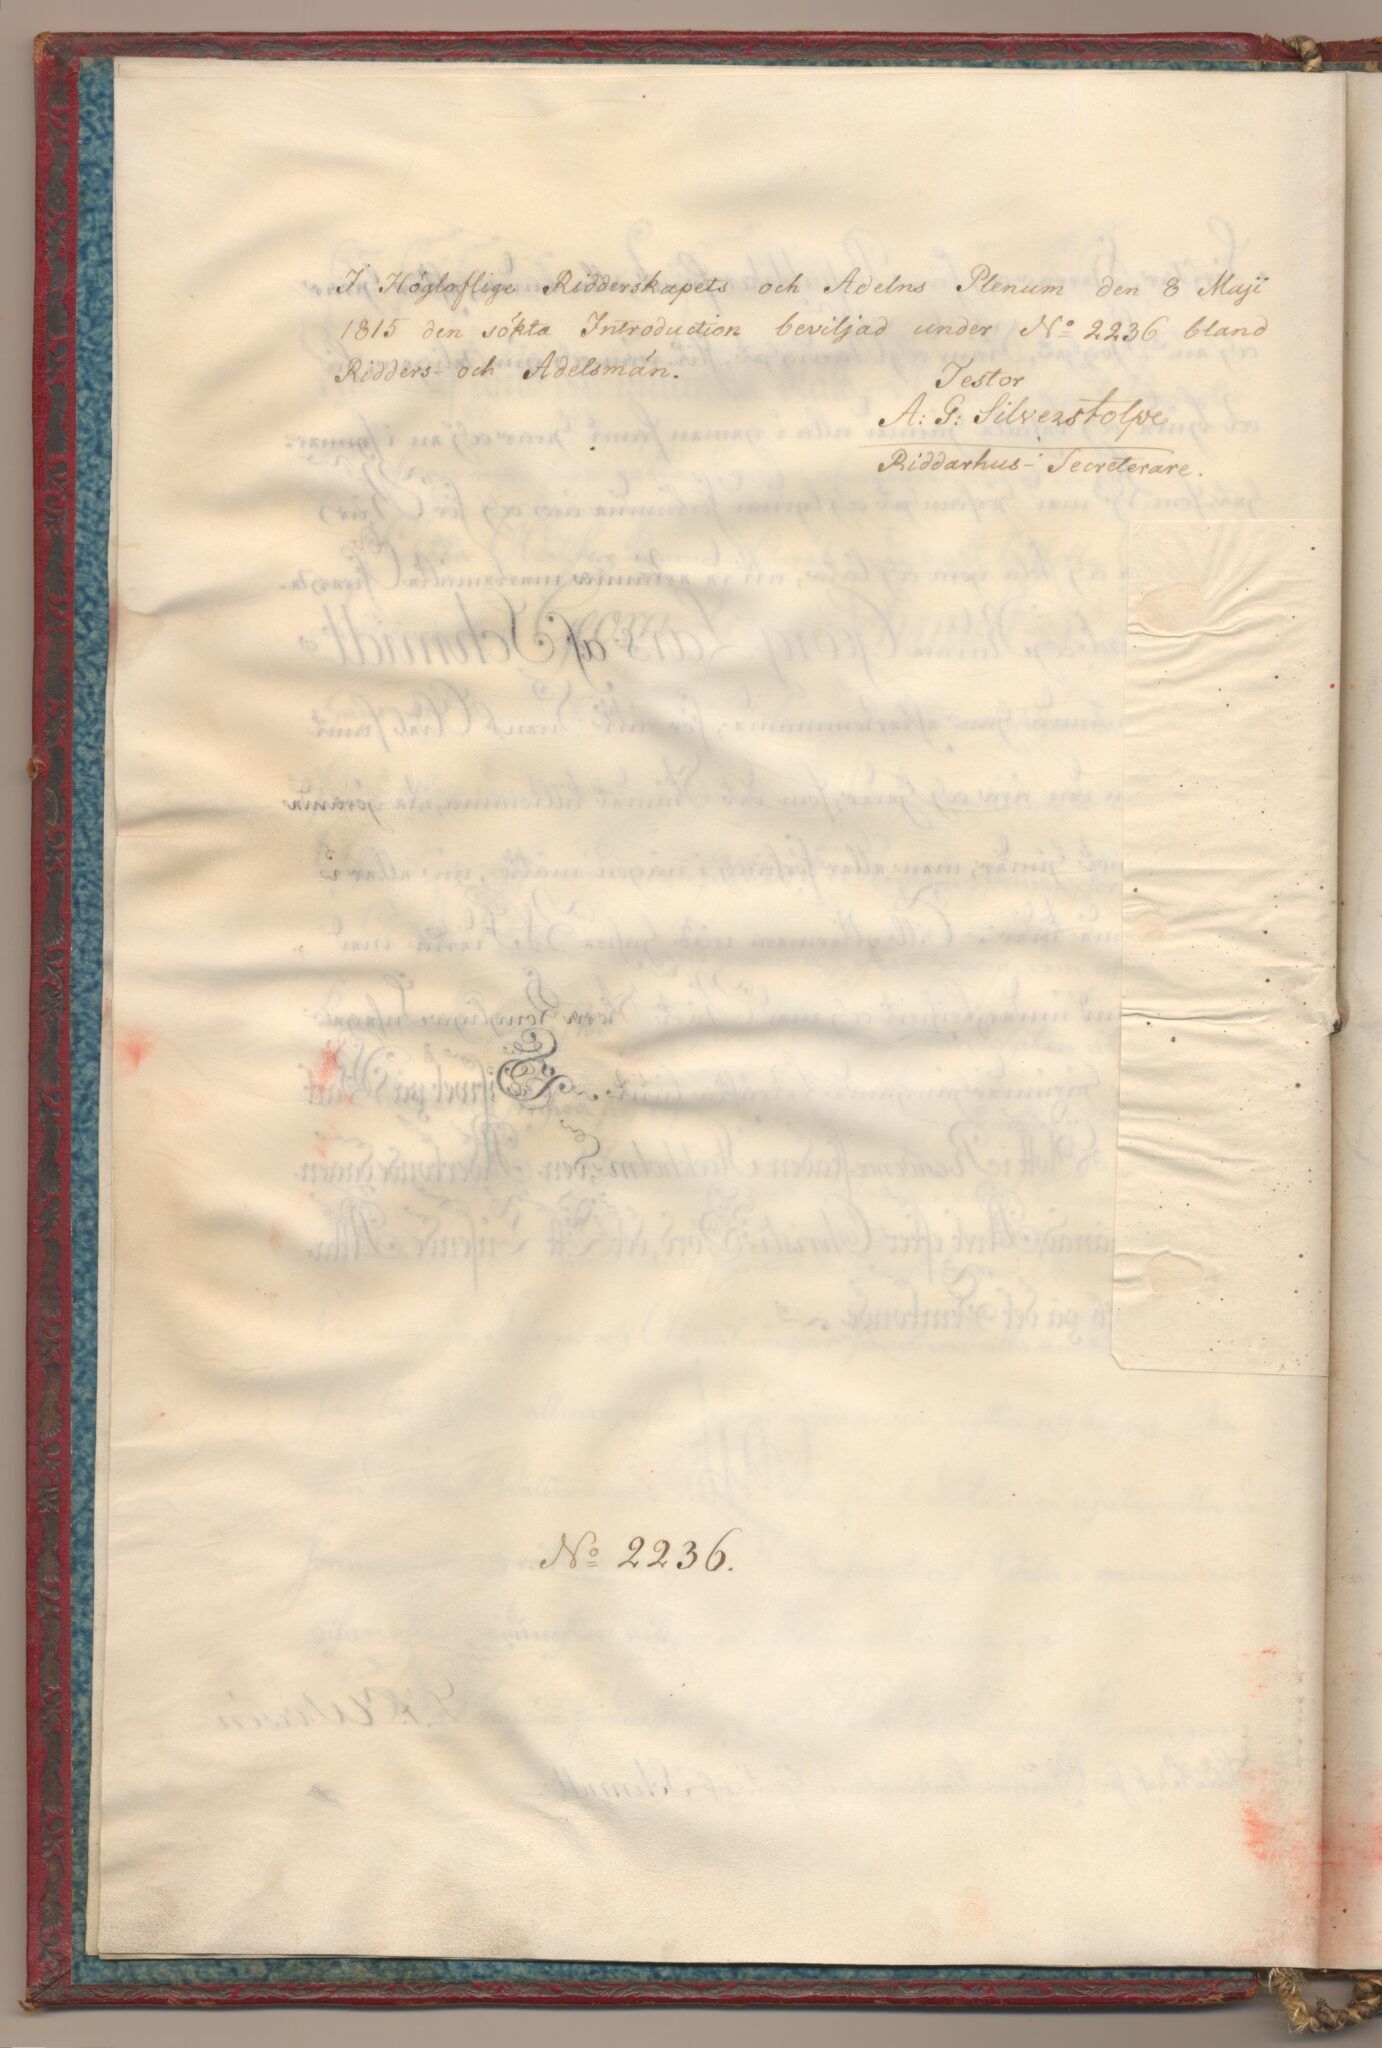 I Högloflige Ridderskapets och Adelns Plenum den 8 Maji
1815 den sökta Introduction beviljad under No 2236 bland
Ridders- och Adelsmän.
Testor
A: G: Silverstolpe
Riddarhus- Secreterare.
No 2236.